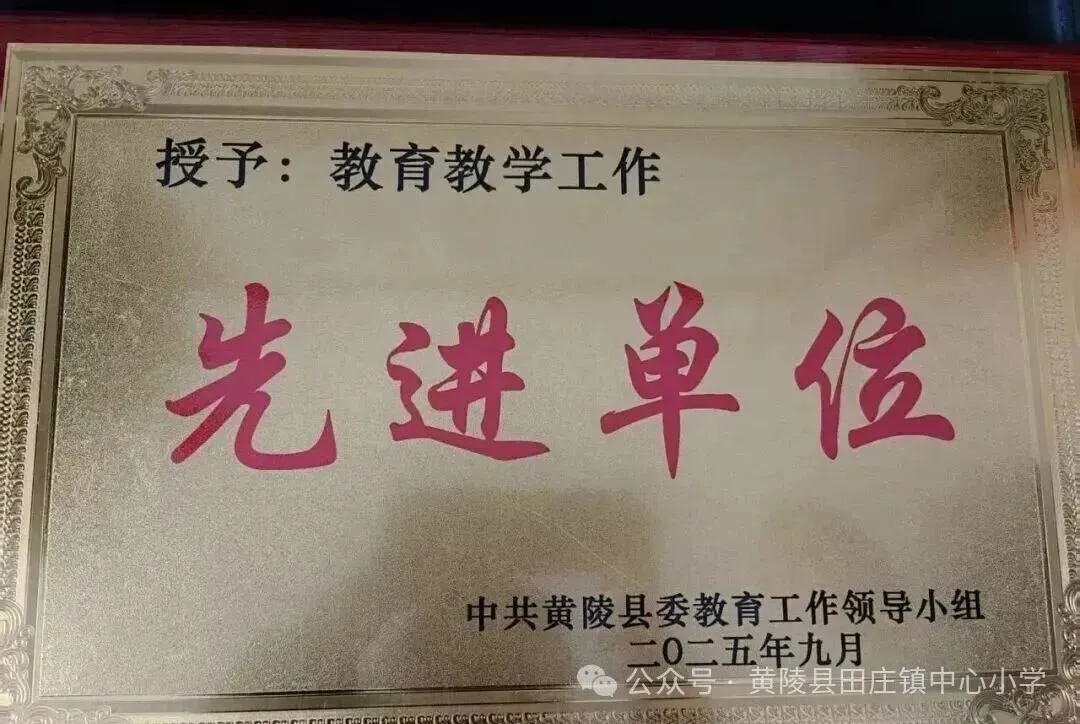 授予：教育教学工作
先进单位
中共黄陵县委教育工作领导小组
二〇二五年九月
公众号·黄陵县田庄镇中心小学